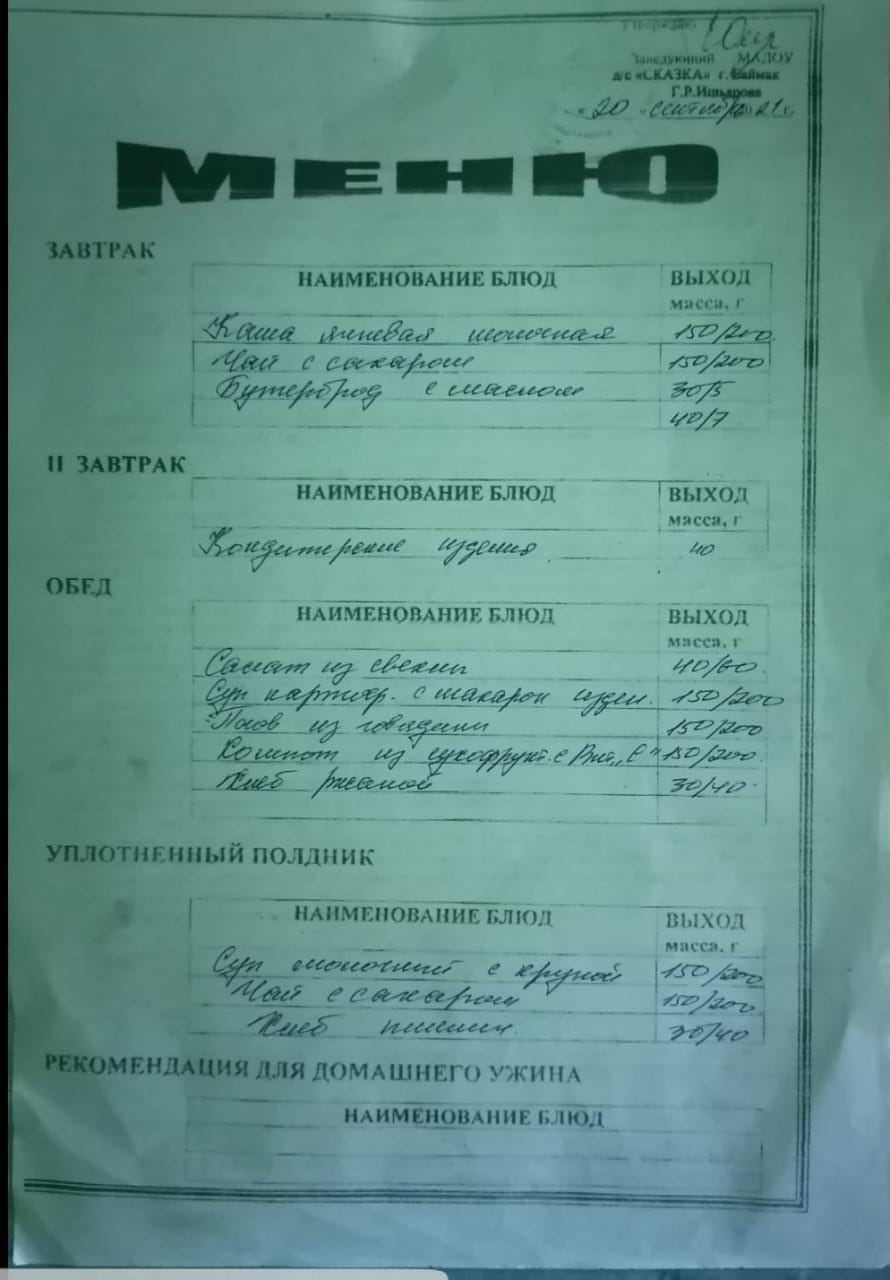 Утверждаю
Заведующий МАДОУ
д/с «СКАЗКА» г. Баймак
Г.Р.Ишьярова
« 20 » сентября 2021 г.
МЕНЮ
ЗАВТРАК
НАИМЕНОВАНИЕ БЛЮД ВЫХОД
масса, г
Каша ячневая молочная 150/200
Чай с сахаром 150/200
Бутерброд с маслом 30/5
40/7
II ЗАВТРАК
НАИМЕНОВАНИЕ БЛЮД ВЫХОД
масса, г
Кондитерские изделия 40
ОБЕД
НАИМЕНОВАНИЕ БЛЮД ВЫХОД
масса, г
Салат из свеклы 40/60
Суп картоф. с макарон издел. 150/200
Плов из говядины 150/200
Компот из сухофрукт. с Вит „С" 150/200
Хлеб ржаной 30/40
УПЛОТНЕННЫЙ ПОЛДНИК
НАИМЕНОВАНИЕ БЛЮД ВЫХОД
масса, г
Суп молочный с крупой 150/200
Чай с сахаром 150/200
Хлеб пшенич. 30/40
РЕКОМЕНДАЦИЯ ДЛЯ ДОМАШНЕГО УЖИНА
НАИМЕНОВАНИЕ БЛЮД